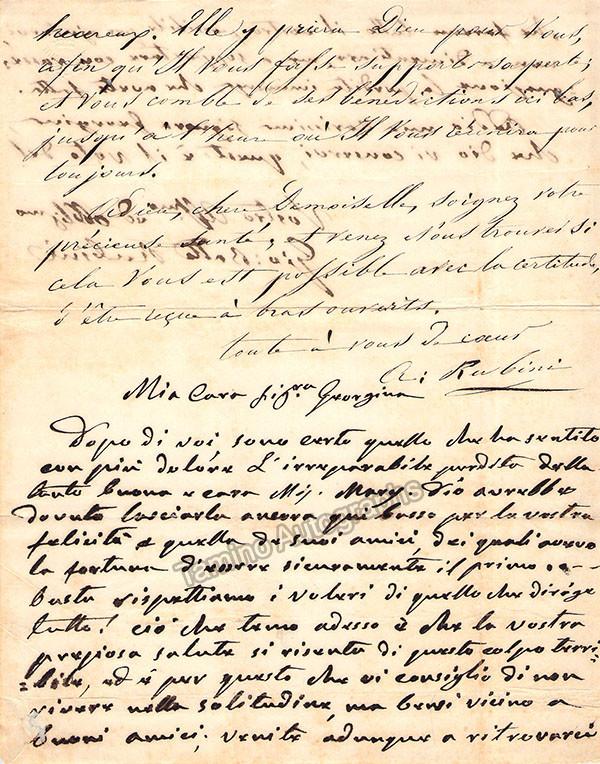 heureux. Elle y priera Dieu pour Vous,
afin qu'Il Vous fasse supporter sa perte;
et Vous comble de ses bénédictions ici bas,
jusqu'à l'heure où Il Vous réunira pour
toujours.
Adieu, chère Demoiselle, soignez votre
précieuse santé; et venez Nous trouver si
cela Vous est possible avec la certitude,
d'être reçue à bras ouverts.
toute à vous de cœur
Rubini
Mia Cara Sig.ra Georgina
Dopo di voi sono certo quello che ha sentito
con più dolore l'irreparabile perdita della
tanto buona e cara Mis. Mary. Dio avrebbe
dovuto lasciarla ancora qui basso per la vostra
felicità e quella de suoi amici, dei quali avevo
la fortuna d'essere sicuramente il primo
Basta rispettiamo i voleri di quello che dirige
tutto! ciò che temo adesso è che la vostra
preziosa salute si risenta di questo colpo terri
=bile, ed è per questo che vi consiglio di non
vivere nella solitudine, ma bensì vicino a
buoni amici; venite adunque a ritrovarci
Tamino Autographs